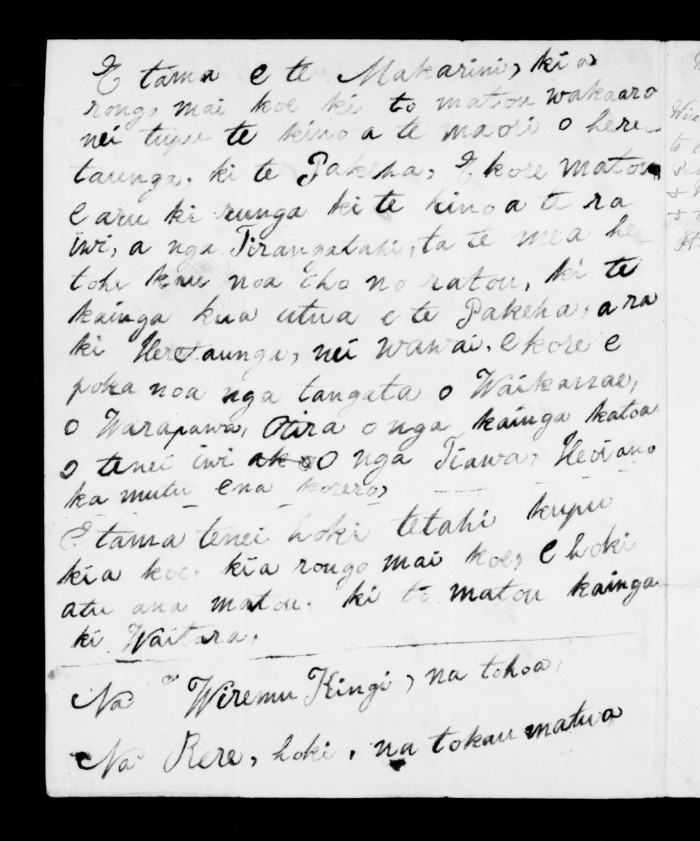 E tama e te Makarini, kia
rongo mai koe ki to matou wakaaro
nei tupu te kino a te maori o here
taunga, ki te Pakeha, E kore matou
e aru ki runga ki te hino a te ra
iwi, a nga Tirangatahi, ta te mea he
tohe kau noa iho no ratou, ki te
kainga kua utua e te Pakeha, ara
ki Heretaunga, nei wawai. e kore e
poka noa nga tangata o Waikanae,
o Warapawa, Otira o nga kainga katoa
o tenei iwi o nga Tiawa, Heoi ano
ka mutu ena korero,
E tama tenei hoki tetahi kupu
kia koe. kia rongo mai koe, E hoki
atu ana matou. ki to matou kainga
ki Waitara.
Na Wiremu Kingi, na tohoa,
Na Rere, hoki, na tokau matua